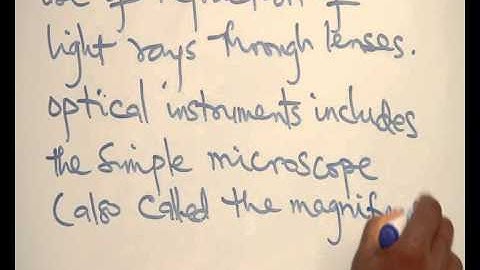 use of refraction of
light rays through lenses.
optical instruments includes
the simple microscope
(also called the magnify